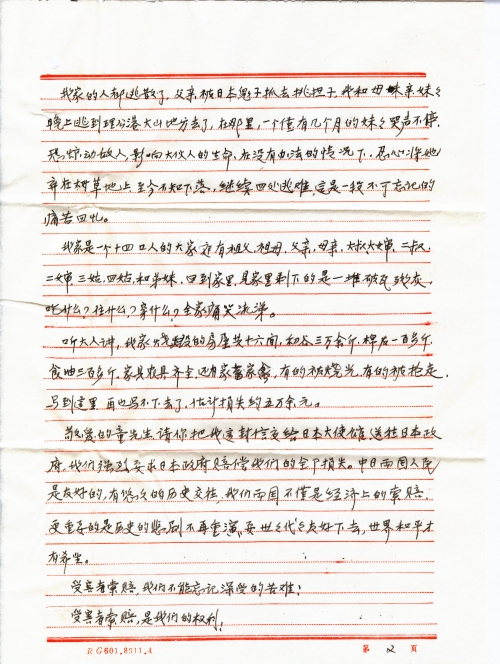 我家的人都逃散了，父亲被日本鬼子抓去挑担子，我和母亲妹妹
晚上逃到 大山地方去了，在那里，一个仅有几个月的妹妹哭声不停，
恐惊动敌人，影响大伙人的生命，在没有办法的情况下，忍心将她
弃在 草地上至今不知下落，继续四处逃难，这是一段不可忘记的
痛苦回忆。
我家是一个十四口人的大家庭有祖父，祖母，父亲，母亲，大叔大婶，二叔，
二婶三姑，四姑，和弟妹，回到家里，见家里剩下的是一堆破瓦残灰，
吃什么？住什么？穿什么？全家痛哭流涕。
听大人讲，我家烧毁的房屋共十六间，和谷三万余斤，棉花一百多斤，
食油三百多斤，家具农具齐全，还有家畜家禽，有的被烧光，有的被抢走，
写到这里再也写不下去了，估计损失约五万余元。
敬爱的童先生请你把我这封信交给日本大使馆送往日本政
府，我们强烈要求日本政府赔偿我们的全部损失。中日两国人民
是友好的，有悠久的历史交往，我们两国不仅是经济上的索赔，
更重要的是历史的悲剧不再重演，要世世代代友好下去，世界和平才
有希望。
受害者索赔，我们不能忘记深受的苦难！
受害者索赔，是我们的权利！
RG601.8611.4 第 2 页